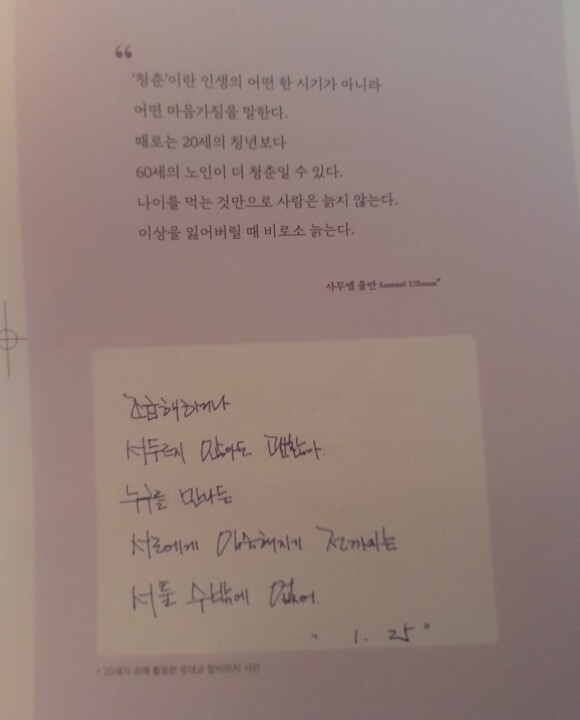 “
‘청춘’이란 인생의 어떤 한 시기가 아니라
어떤 마음가짐을 말한다.
때로는 20세의 청년보다
60세의 노인이 더 청춘일 수 있다.
나이를 먹는 것만으로 사람은 늙지 않는다.
이상을 잃어버릴 때 비로소 늙는다.
사무엘 울만 Samuel Ullman*
조급해하거나
서두르지 않아도 괜찮아.
누구를 만나든
서로에게 익숙해지기 전까지는
서툴 수밖에 없어.
" 1. 25 "
* 20세기 초에 활동한 유대교 랍비이자 시인